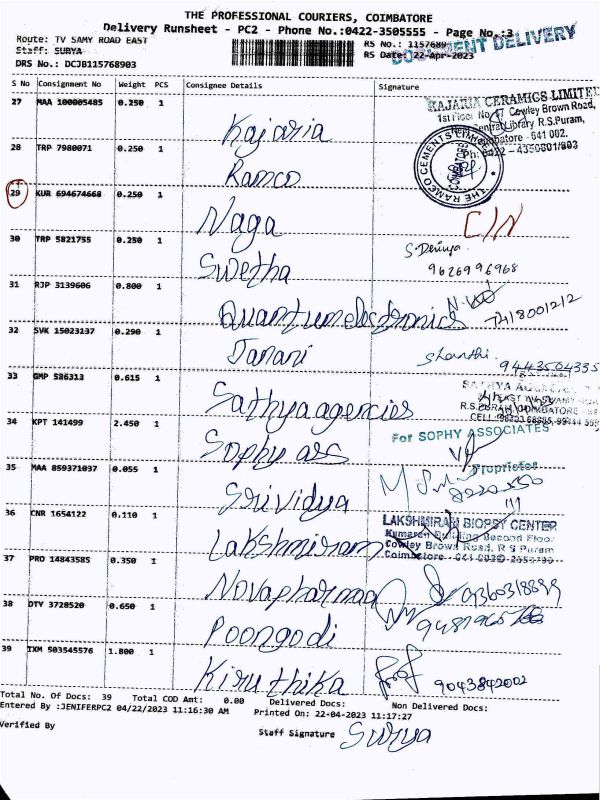 THE PROFESSIONAL COURIERS, COIMBATORE
Delivery Runsheet - PC2 - Phone No.:0422-3505555 - Page No.:3
Route: TV SAMY ROAD EAST
RS No.: 1157689
DOCUMENT DELIVERY
Staff: SURYA
RS Date: 22-Apr-2023
DRS No.: DCJB115768903
S No Consignment No Weight PCS Consignee Details Signature
27 MAA 100005485 0.250 1
KAJARIA CERAMICS LIMITED
1st Floor No Cowley Brown Road,
Central Library R.S.Puram,
Coimbatore - 641 002.
Ph: 0422 - 4350801/803
Kajaria
28 TRP 7980071 0.250 1
THE RAMCO CEMENTS LIMITED
Ramco
29 KUR 694674668 0.250 1
C/N
Naga
30 TRP 5821755 0.250 1
9626996968
Swetha
31 RJP 3139606 0.800 1
7418001212
Quantum electronics
32 SVK 15023137 0.290 1
Janani
Shanthi.
9443504335
33 GMP 586313 0.615 1
SATHYA
R.S.PURAM, COIMBATORE
Sathya agencies
34 KPT 141499 2.450 1
For SOPHY ASSOCIATES
Proprietor
Sophy ass
35 MAA 859371037 0.055 1
Srividya
36 CNR 1654122 0.110 1
LAKSHMIRAM BIOPSY CENTER
Kumaran Building Second Floor
Cowley Brown Road, R S Puram
Coimbatore
Lakshmiram
37 PRO 14843585 0.350 1
Novapharmaa
38 OTY 3728520 0.650 1
Poongodi
39 TXM 503545576 1.800 1
Kiruthika
9043842002
Total No. Of Docs: 39 Total COD Amt: 0.00 Delivered Docs: Non Delivered Docs:
Entered By :JENIFERPC2 04/22/2023 11:16:30 AM Printed On: 22-04-2023 11:17:27
Verified By
Staff Signature Surya